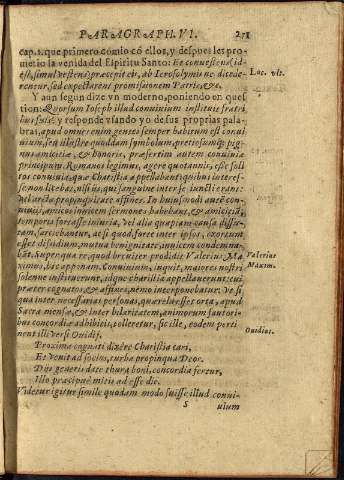 PARAGRAPH. VI. 271
cap. 1. que primero comio cō ellos, y despues les pro-
metio la venida del Espiritu Santo: Et conuescens (id
est, simul vescens) præcepit eis, ab Ierosolymis ne disce-
derentur, sed expectarent promissionem Patris, &c.
Luc. vlt.
Y aun segun dize vn moderno, poniendo en ques
tion: Quorsum Ioseph illud conuiuium instituit fratri
bus suis? y responde vsando yo de sus propias pala-
bras, apud omnes enim gentes semper habitum est conui
uium, sed illustre quoddam symbolum, pretiosumq; pig
nus amicitiæ, & honoris, præsertim autem conuiuia
principum. Romanos legimus, agere quotannis, esse soli
tos conuiuia, quæ Charistia appellabant, quibus interes
se non licebat, nisi iis, qui sanguine inter se iuncti erant:
vel arcta propinquitate affines. In huiusmodi autē con-
uiuiis, amicos inuicem sermones habebant, & amicitiā,
temporis forsasse iniuria, vel alia quapiam causa dissec-
tam, sarciebant, ac si quod forte inter ipsos, exortum
esset dissidium, mutua benignitate, inuicem condemna-
bāt. Super qua re, quod breuiter prodidit Valerius Ma
ximus, hic apponam. Conuiuium, inquit, maiores nostri
Valerius
Maxim.
solemne instituerunt, idque charistia appellauerunt; cui
præter cognatos, & affines, nemo interponebatur. Vt si
qua inter necessarias personas, quærelar esset orta, apud
Sacra mensæ, & inter hilaritatem, animorum fautori-
bus concordiæ adhibitis, tolleretur, sic ille, eodem perti
nent illi versi Ouidij.
Ouidios.
Proxima cognati dixere Charistia cari,
Et venit ad socios, turba propinqua Deos.
Dijs generis date thura boni, concordia fertur,
Illo præcipuè mitis adesse die.
Videtur igitur simile quodam modo fuisse illud conui-
S uium